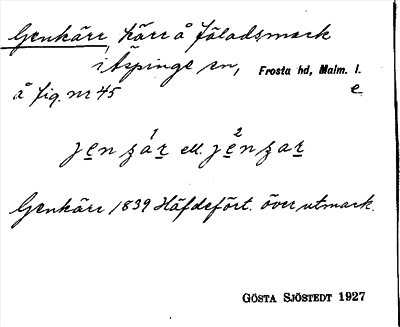 Genkärr, kärr å fäladsmark
i Äspinge sn, Frosta hd, Malm. l.
å fig. nr 45 e
jenʒár ell. jènʒar
Genkärr 1839 Häfdefört. över utmark.
GÖSTA SJÖSTEDT 1927